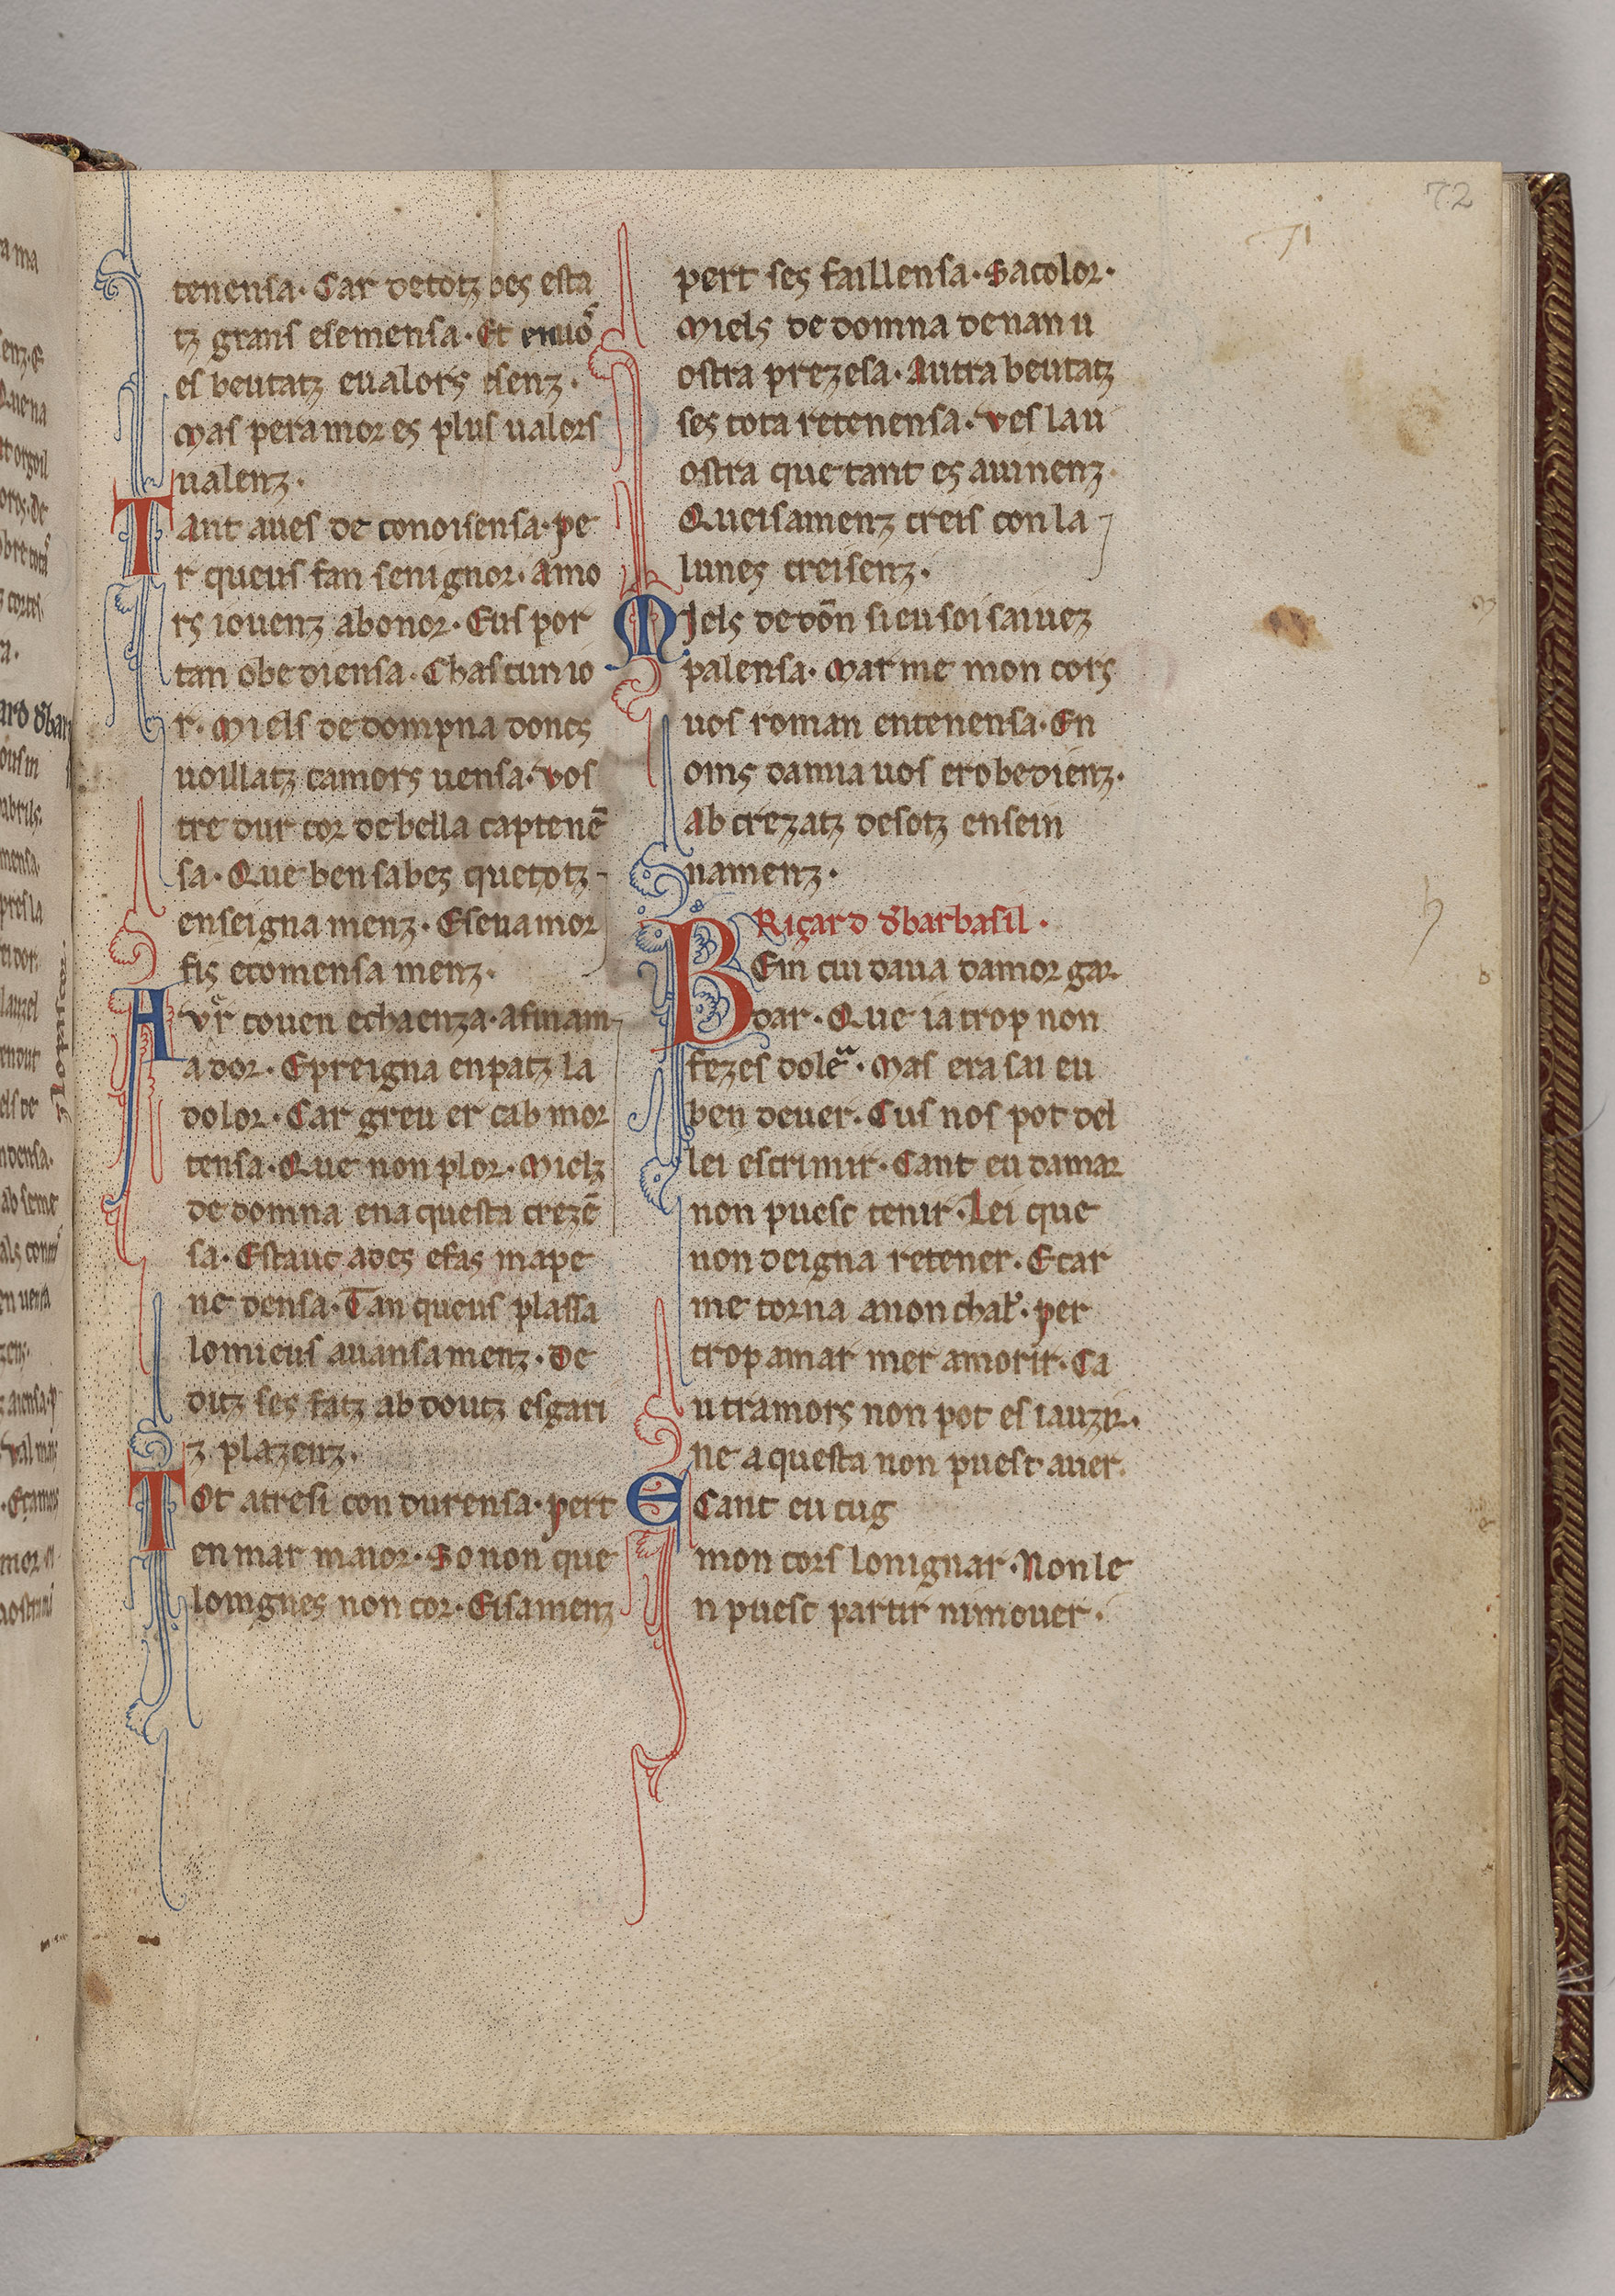 72
71
tenensa. Car detotz bes esta
tz grans esemensa. Et enuos
es beutatz eualors esenz.
Mas peramor es plus ualors
ualenz.
Tant aues de conoisensa. pe
r queus fan senignor. Amo
rs iouenz abonor. Eus por
tan obediensa. Chascun io
r. Miels dedompna doncs
uoillatz camors uensa. Vos
tre dur cor debella captenē
sa. Que ben sabes quetotz
enseigna menz. Esenamor
fis ecomensa menz.
couen echaenza. afinam
ador. Epreigna enpatz la
dolor. Car greu er cab mor
tensa. Que non plor. Mielz
de domna enaquesta crezē
sa. Estauc ades efas mape
ne densa. Tan queus plassa
lomieus auansamenz. De
outz ses fatz ab doutz esgari
z plazenz.
Tot atresi con durensa. pert
en mar maior. So non que
loingnes non cor. Eisamenz
pert ses faillensa. Sacolor.
Miels de domna denan u
ostra prezesa. Autra beutatz
ses tota retenensa. Ves lau
ostra que tant es auinenz.
Queisamenz creis con la
lunes creisenz.
Miels de dōn si eu soi saiuez
palensa. Mar me mon cors
uos roman entenensa. En
oms damia uos er obedienz.
Ab crezatz desotz ensein
namenz.
Riçard đbarbasil.
Bein cui daua damor gar
dar. Que ia trop non
fezes dolēͣ. Mas era sai eu
ben deuer. Cus nos pot del
lei escrimir. Cant eu damar
non puesc tenir. Lei que
non deigna retener. E car
me torna anon chaler. per
trop amar mer amorir. Ca
utramors non pot esiauzir.
ne aquesta non puesc auer.
E Cant eu cug
mon cors lonignar. Non le
n puesc partir nimouer.